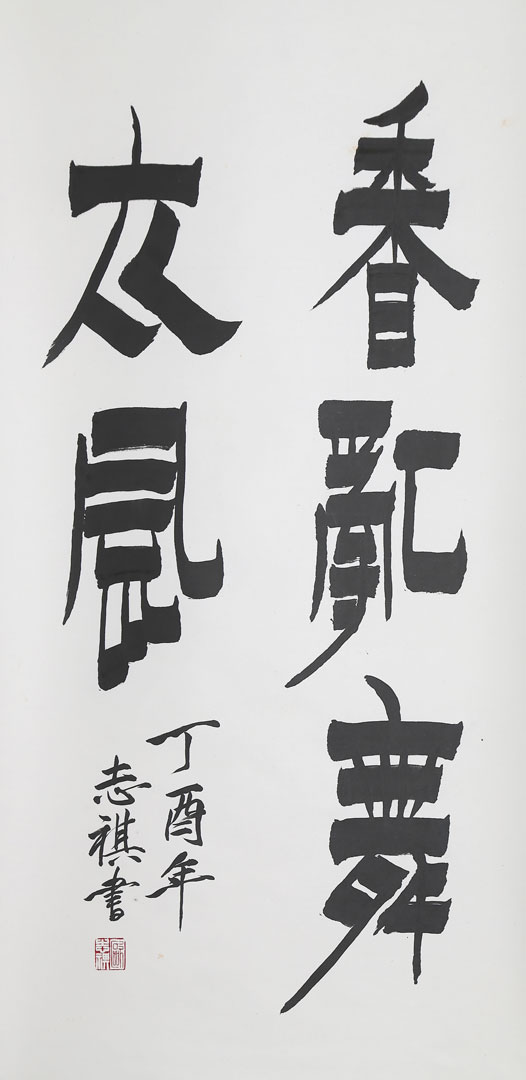 香亂舞
衣風
丁酉年
志祺書